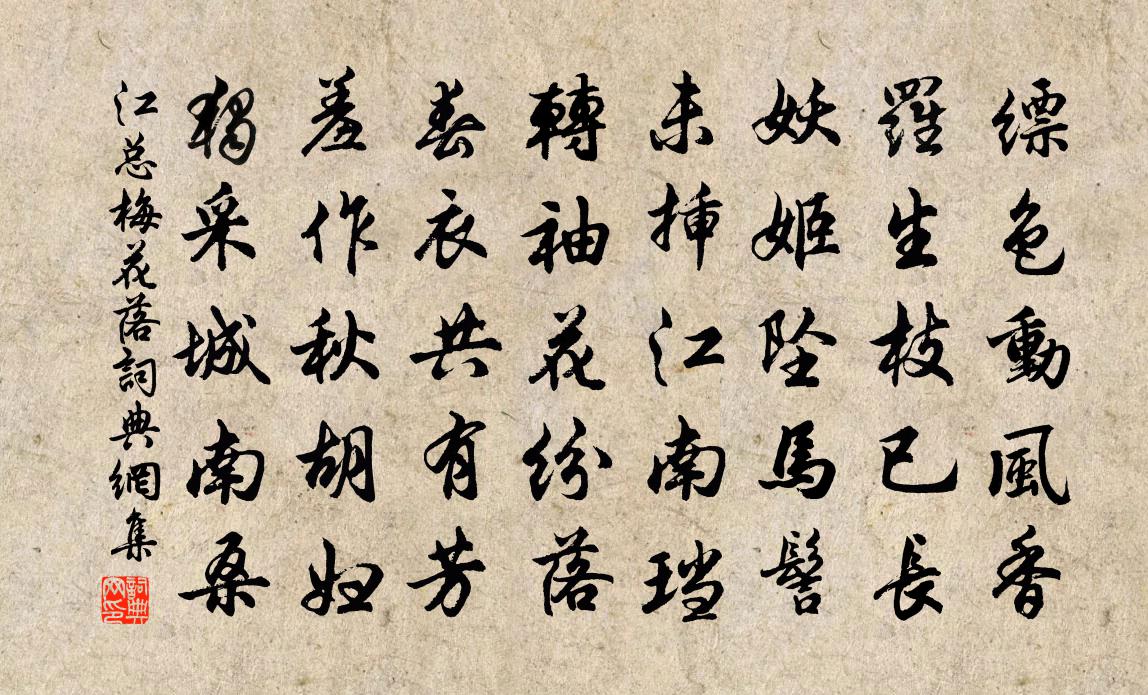 縹色動風香
羅生枝已長
妖姬墜馬髻
未插江南璫
轉袖花紛落
春衣共有芳
羞作秋胡婦
獨采城南桑
江總梅花落詞典網集
詞典網印